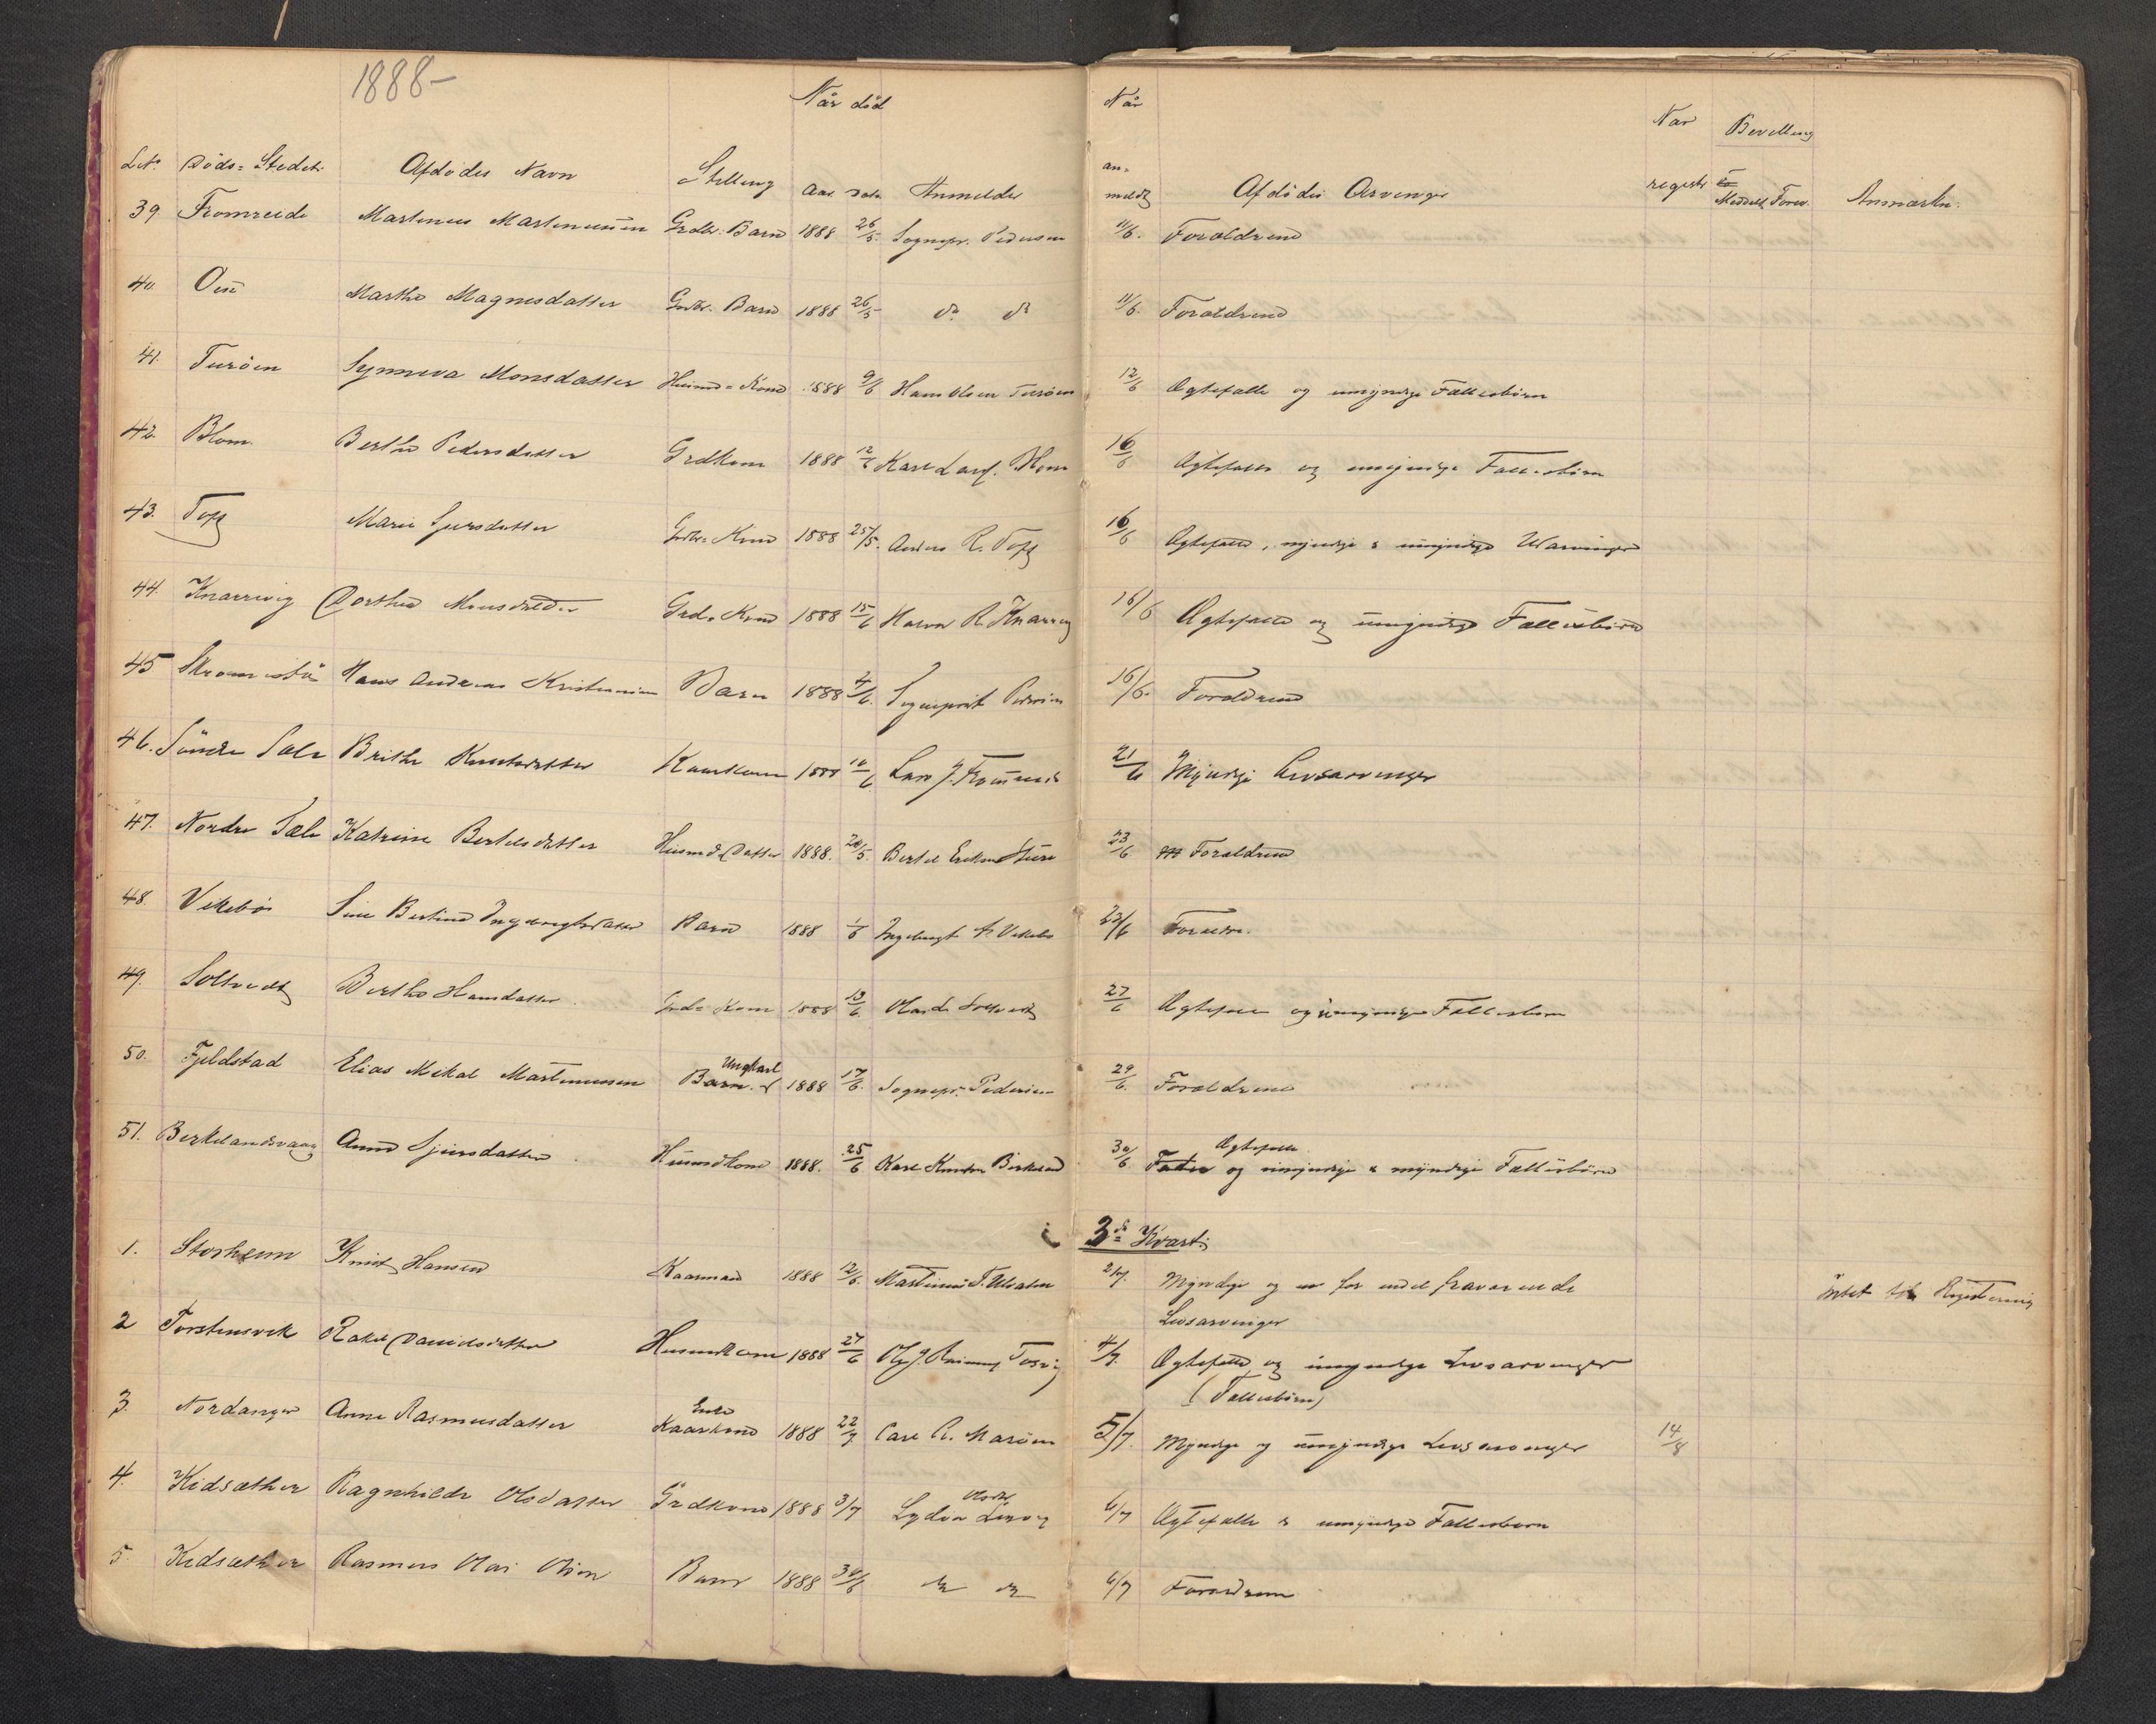 1888-
Når död
Når
Nar
Bevilling
Lno. Döds-Stedet. Afdödes Navn Stilling Aar Dato Anmelder an-meldt Afdödes Arvinger registr Meddelt Forev. Anmærkn.
39 Fromreide Martinus Martinussen Grdbr. Barn 1888 26/5. Sognepr. Pedersen 11/6. Forældrene
40 Martha Magnesdatter Grdbr. Barn 1888 26/5 do do 11/6. Forældrene
41. Turöen Synneva Monsdatter Husmd-Kone 1888 9/6 Hans Olsen Turöen 12/6 Ægtefælle og umyndige Fællesbörn
42. Blom. Bertha Pedersdatter Grdkone 1888 12/6 Karl Larss. Blom 16/6 Ægtefælle og umyndige Fællesbörn
43. Toft Marie Sjursdatter Grdbr-Kone 1888 25/5. Anders R. Toft 16/6 Ægtefælle, myndige & umyndige
44. Knarrvig Dorthea Monsdatter Grd. Kone 1888 15/6 R. Knarrvig 16/6 Ægtefælle og umyndige Fællesbörn
45 Hans Andreas Kristiansen Barn 1888 4/6. Sogneprest Pedersen 16/6. Forældrene
46. Söndre Sæle Brithe Knutsdatter Kaarkone 1888 10/6 Lars J. 21/6 Myndige Livsarvinger
47. Nordre Sæle Katrine Bertelsdatter Husmd Datter 1888. 20/5. Bertel Eriksen 23/6 Forældrene
48. Vikebö Sine Bertine Ingebrigtsdatter Barn 1888 1/6 Ingebrigt Vikebö 23/6 Forældre.
49. Soltvedt Bertha Hansdatter Grd-Kone 1888 13/6. Soltvedt 27/6 Ægtefælle og umyndige Fællesbörn
50. Fjeldstad Elias Mikal Martinussen Ungkarl Barn. 1888 17/6. Sognepr. Pedersen 29/6. Forældrene
51. Birkelandsvaag Anna Sjursdatter Husmdkone 1888. 25/6 Karl Knutsen Birkeland 30/6 Ægtefælle
Fader og umyndige & myndige Fællesbörn
3de Kvart.
1. Storheim Knut Hansen Kaarmand 1888 12/6. Martinus T. Ulvatn 2/7. Myndige og for endel fraværende Intet til Registrering
Livsarvinger
2 Torstensvik Rakel Davidsdatter Husmdkone 1888 27/6 4/7. Ægtefælle og umyndige Livsarvinger
(Fællesbörn)
3. Nordanger Anna Rasmusdatter Enke Kaarkone 1888 22/7 Carl A. Maröen 5/7. Myndige og umyndige Livsarvinger 14/8
4. Kidsæther Ragnhilde Olsdatter Grdkone 1888 3/7 Lydia Olsdtr. 6/7 Ægtefælle & umyndige Fællesbörn
5. Kidsæther Rasmus Olai Olsen Barn 1888 30/6 do do 6/7 Forældrene